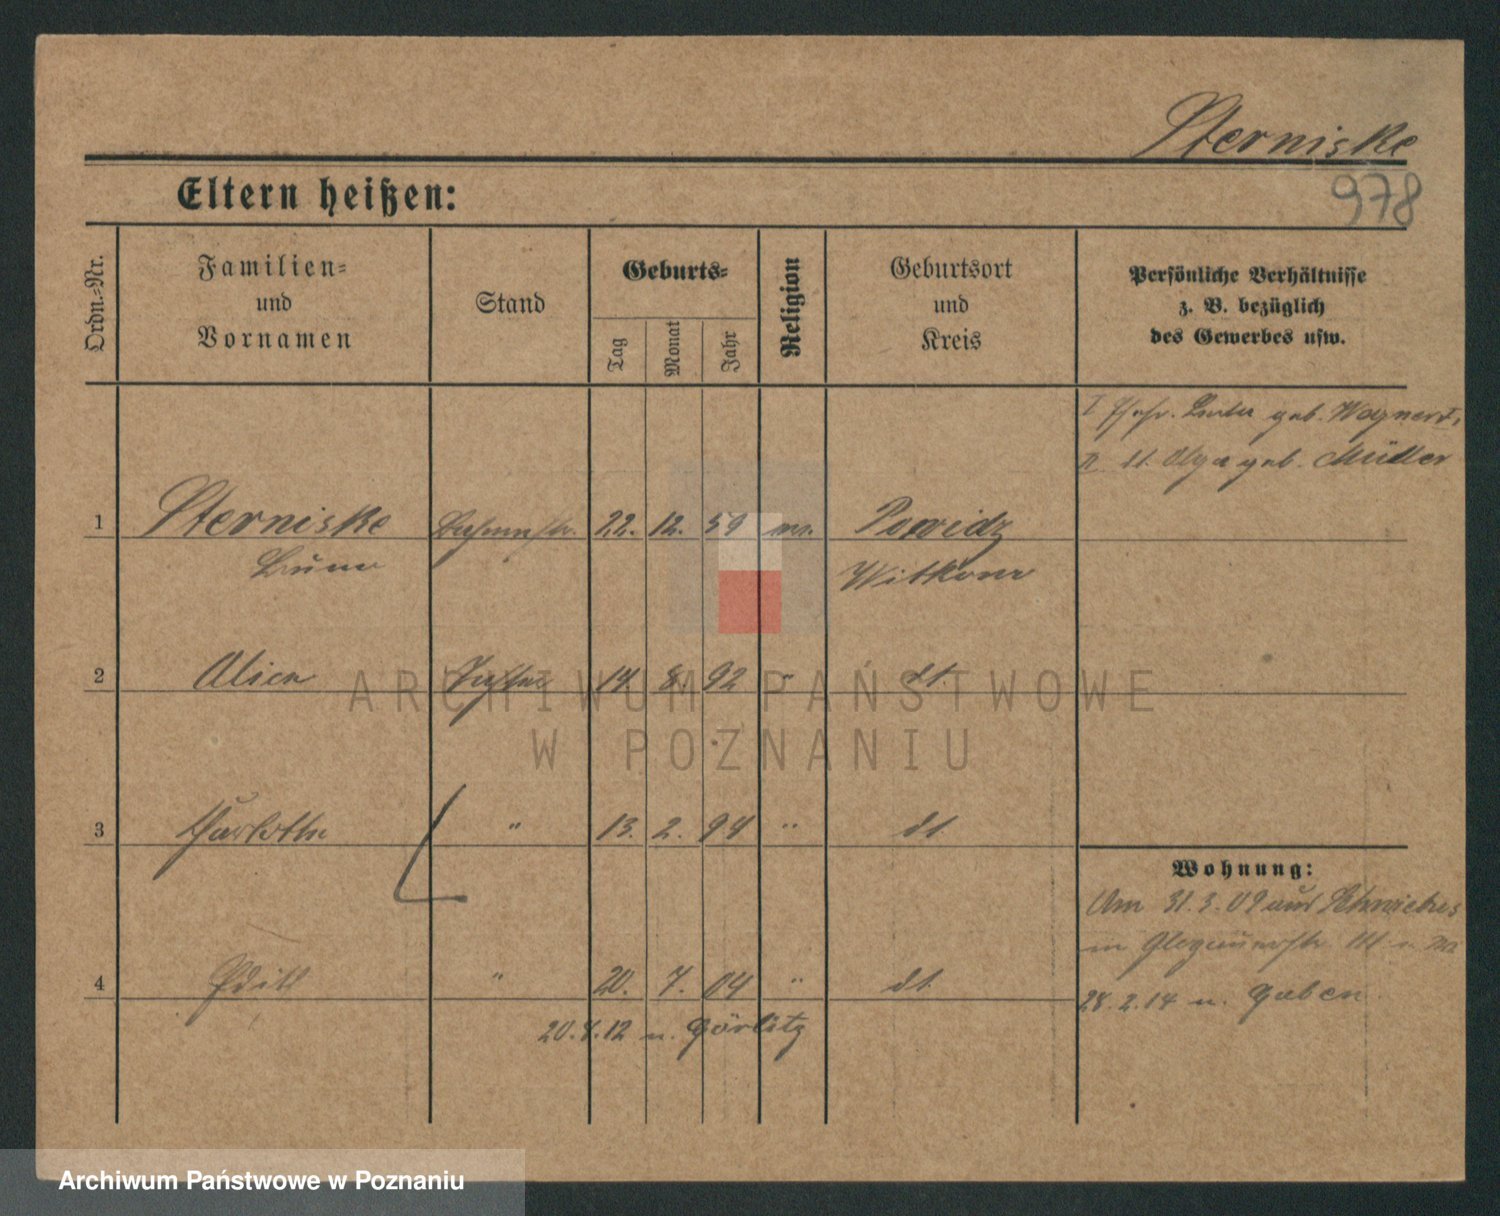 Sterniske
978
Eltern heißen:
Ordn.=Nr.
Familien=
und
Vornamen
Stand
Geburts=
Tag
Monat
Jahr
Religion
Geburtsort
und
Kreis
Persönliche Verhältnisse
z. B. bezüglich
des Gewerbes usw.
I geb.
II dt. Olga geb. Müller
1 Sterniske 22. 12. 59 Powidz
Bruno Witkowo
2 Alice Tochter 14. 8. 92 " dt.
3 " 13. 2. 94 " dt.
Wohnung:
Am 31.3.09 aus Schwiebus
in Glogauerstr.
4 Edith " 20. 7. 04 " dt.
28.2.14 n. Guben
20.8.12 n. Görlitz
ARCHIWUM PAŃSTWOWE
W POZNANIU
Archiwum Państwowe w Poznaniu